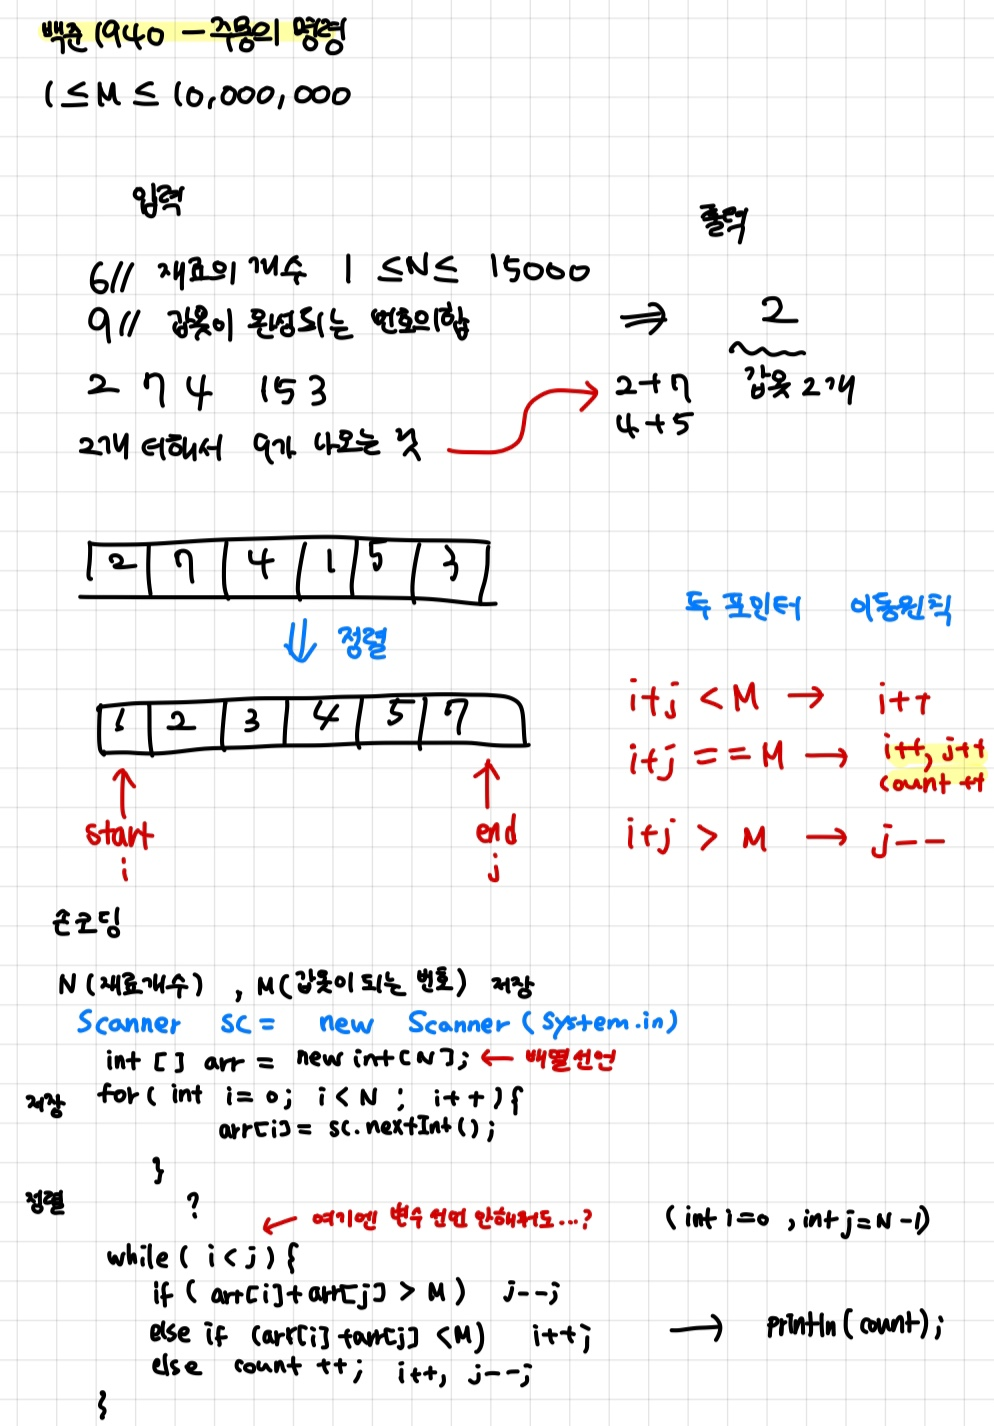 백준 1940 - 주몽의 명령
1 ≤ M ≤ 10,000,000
입력
출력
6// 재료의 개수 1 ≤N≤ 15000
9// 갑옷이 완성되는 번호의합
⇒ 2
2 7 4 1 5 3
2+7 갑옷 2개
4+5
2개 더해서 9가 나오는 것
2 7 4 1 5 3
두 포인터 이동원칙
⇓ 정렬
1 2 3 4 5 7
i+j < M → i++
i+j == M → i++, j++
count ++
i+j > M → j--
start end
i j
손코딩
N (재료개수) , M(갑옷이 되는 번호) 저장
Scanner sc = new Scanner (System.in)
int [] arr = new int[N]; ← 배열선언
저장 for( int i= 0; i<N ; i++){
arr[i]= sc.nextInt();
}
정렬 ?
← 여기엔 변수 선언 안해줘도...? (int i=0 , int j=N-1)
while ( i<j ) {
if ( arr[i]+arr[j] > M ) j--;
else if (arr[i]+arr[j] <M) i++; → println (count);
else count ++; i++, j--;
}